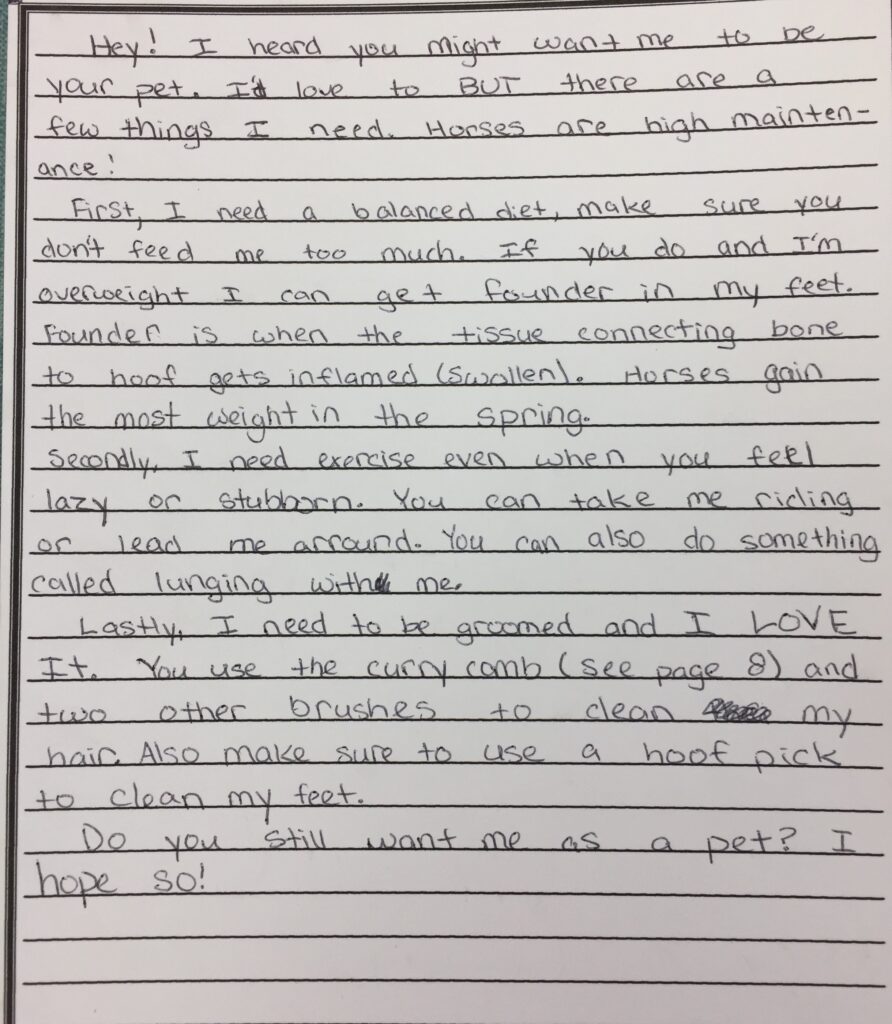 Hey! I heard you might want me to be
your pet. I'd love to BUT there are a
few things I need. Horses are high mainten-
ance!
First, I need a balanced diet, make sure you
don't feed me too much. If you do and I'm
overweight I can get founder in my feet.
Founder is when the tissue connecting bone
to hoof gets inflamed (swollen). Horses gain
the most weight in the spring.
Secondly, I need exercise even when you feel
lazy or stubborn. You can take me riding
or lead me arround. You can also do something
called lunging with me.
Lastly, I need to be groomed and I LOVE
It. You use the curry comb (see page 8) and
two other brushes to clean my
hair. Also make sure to use a hoof pick
to clean my feet.
Do you still want me as a pet? I
hope so!